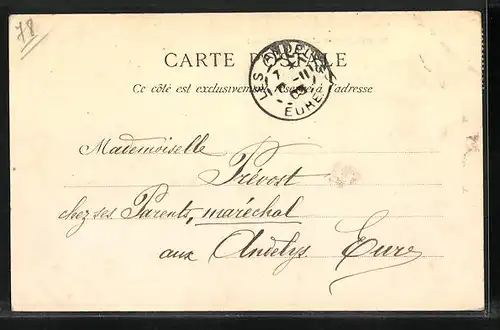 78
CARTE POSTALE
Ce côté est exclusivement réservé à l'adresse
LES ANDELYS
EURE
Mademoiselle
Prévost
chez ses Parents, maréchal
aux Andelys Eure